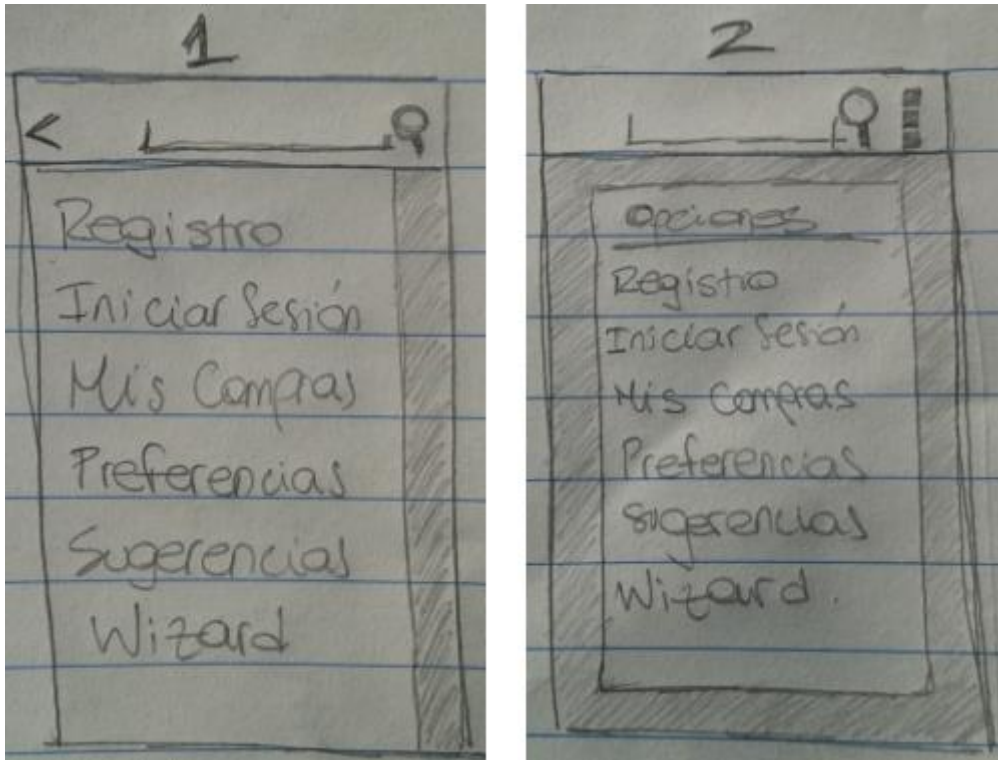 1
<
Registro
Iniciar Sesión
Mis Compras
Preferencias
Sugerencias
Wizard
2
Opciones
Registro
Iniciar Sesión
Mis Compras
Preferencias
Sugerencias
Wizard.